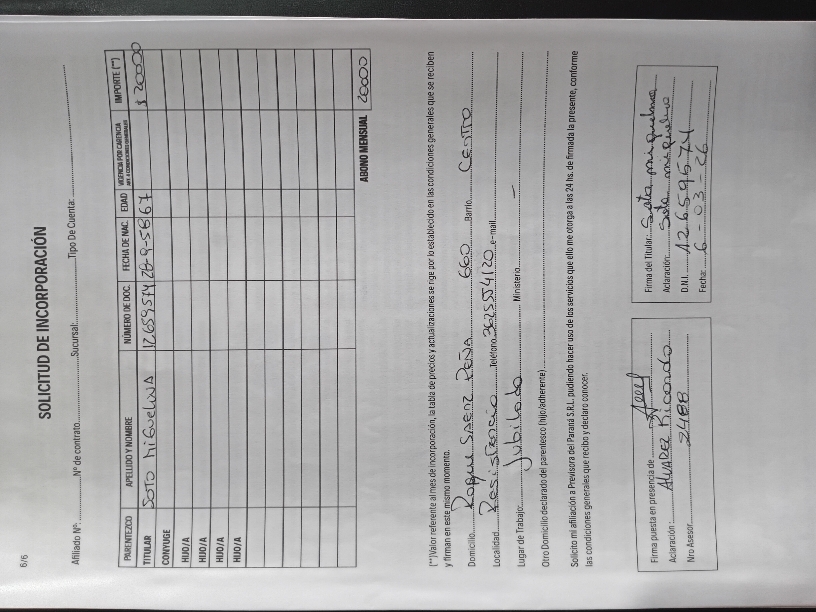 6/6
SOLICITUD DE INCORPORACIÓN
Afiliado Nº: Nº de contrato Sucursal: Tipo De Cuenta:
PARENTEZCO APELLIDO Y NOMBRE NÚMERO DE DOC. FECHA DE NAC. EDAD VIGENCIA POR CARENCIA ART. 4 CONDICIONES GENERALES IMPORTE (**)
TITULAR SOTO MIGUELINA 12659574 28-9-58 67 $ 20000
CONYUGE
HIJO/A
HIJO/A
HIJO/A
HIJO/A
ABONO MENSUAL 20000
(**)Valor referente al mes de incorporación, la tabla de precios y actualizaciones se rige por lo establecido en las condiciones generales que se reciben
y firman en este mismo momento.
Domicilio Roque Saenz Peña 660 Barrio CENTRO
Localidad Resistencia Teléfono 3625554120 e-mail
Lugar de Trabajo: Jubilado Ministerio —
Otro Domicilio declarado del parentesco (hijo/adherente)
Solicito mi afiliación a Previsora del Paraná S.R.L. pudiendo hacer uso de los servicios que ello me otorga a las 24 hs. de firmada la presente, conforme
las condiciones generales que recibo y declaro conocer.
Firma puesta en presencia de
Aclaración: ALVAREZ Ricardo
Nro Asesor 2488
Firma del Titular: Soto miguelina
Aclaración: Soto miguelina
D.N.I. 12659574
Fecha: 6-03-26